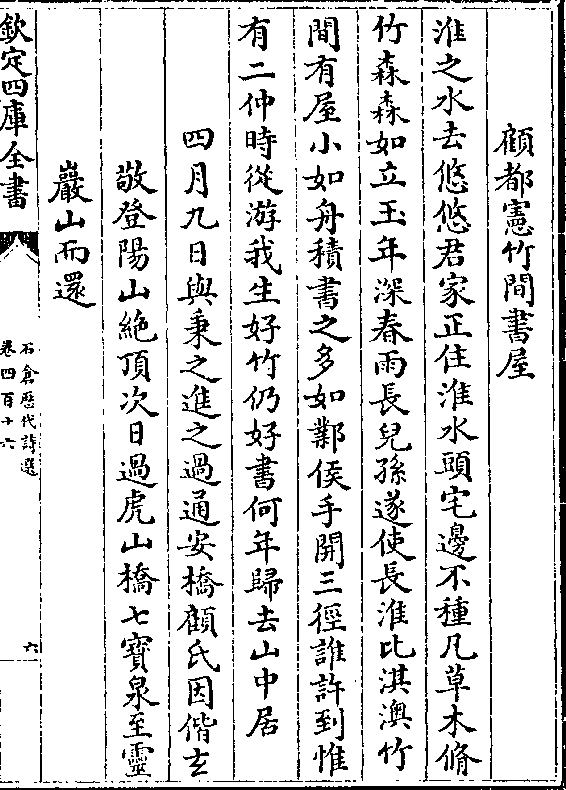 顧都憲竹間書屋
淮之水去悠悠君家正住淮水頭宅邊不種凡草木脩
竹森森如立玉年深春雨長兒孫遂使長淮比淇澳竹
間有屋小如舟積書之多如鄴侯手開三徑誰許到惟
有二仲時從游我生好竹仍好書何年歸去山中居
四月九日與秉之進之過通安橋顧氏因偕玄
敬登陽山絶頂次日過虎山橋七寳泉至靈
巖山而還
欽定四庫全書
石倉歴代詩選
卷四百十六
六